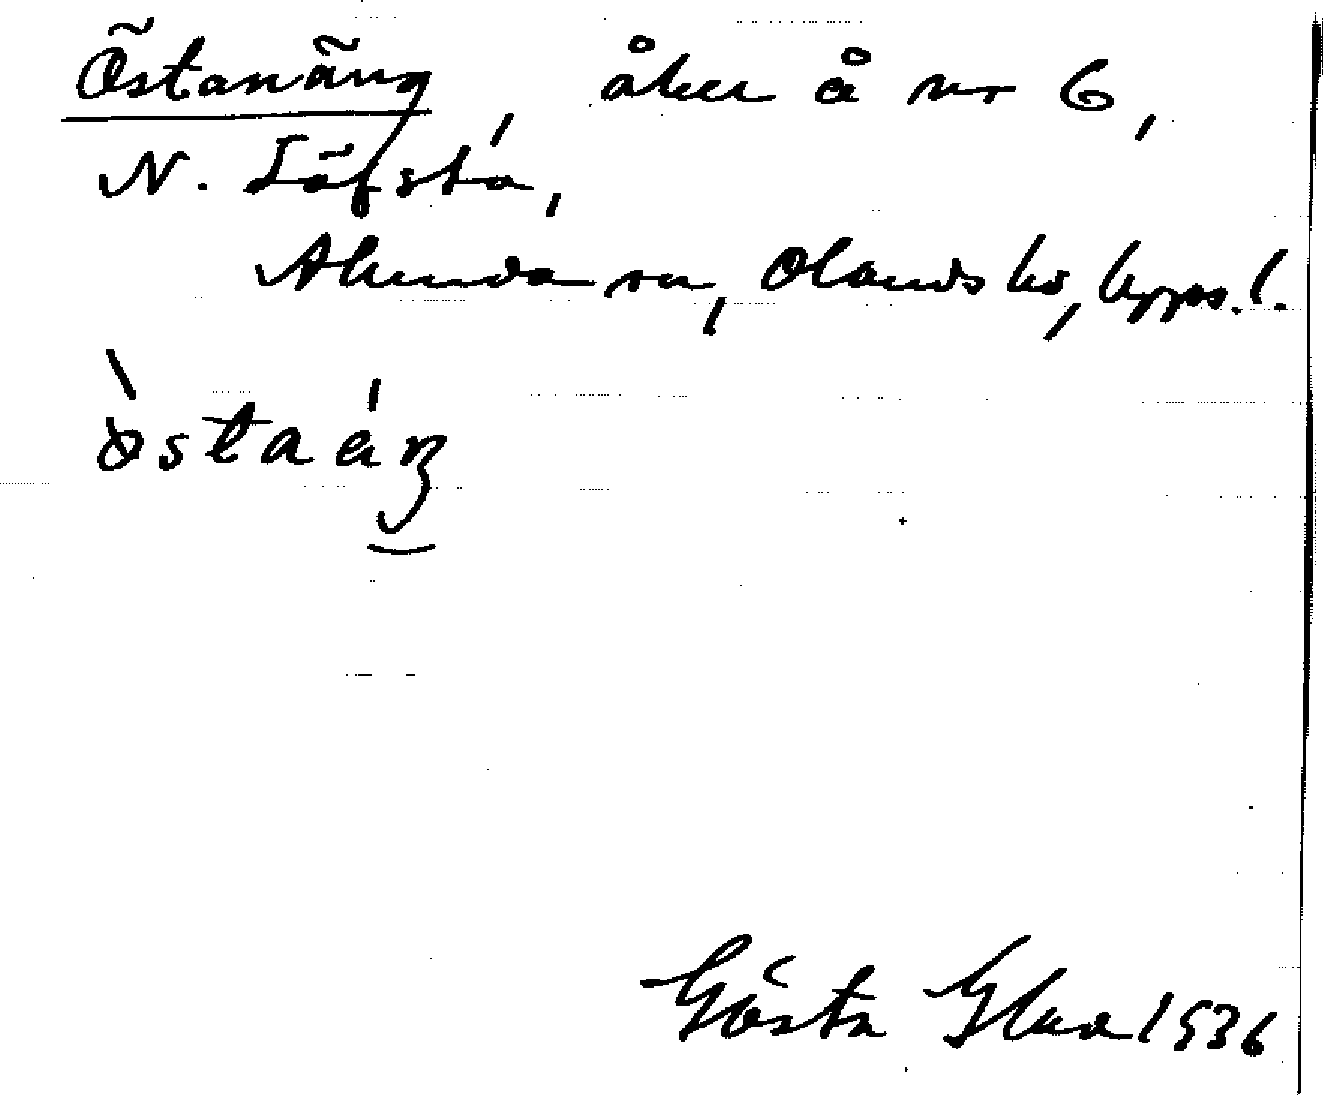 Östanäng, åker å nr 6,
N. Löfsta,
Alunda sn, Olands hd, Upps. l.
òstaáŋ
Gösta Glad 1936